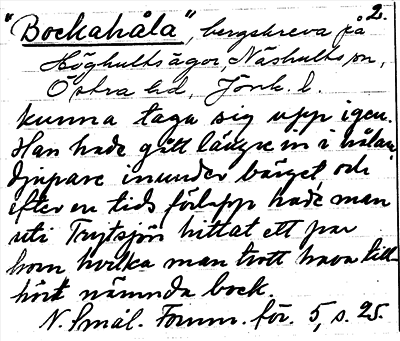 2.
"Bockahåla", bergskreva på
Höghultsägor, Näshults sn,
Östra hd, Jönk. l.
kunna taga sig upp igen.
Han hade gått längre in i hålan
djupare inunder bärget och
efter en tids förlopp hade man
uti Trytsjön hittat ett par
horn hvilka man trott hava till-
hört nämnda bock.
N. Smål. Fornm. för. 5, s. 25.